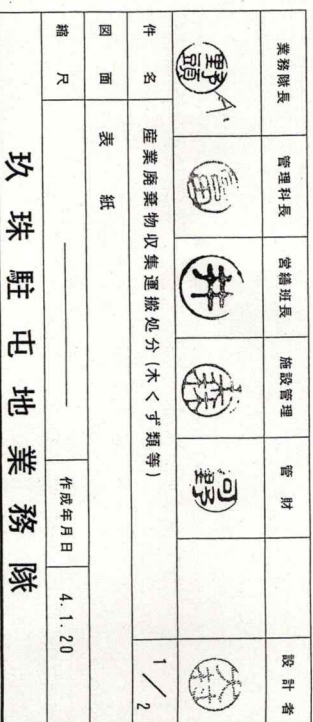 業務隊長 管理科長 営繕班長 施設管理 管財 設計者
野頭 河野
件名 産業廃棄物収集運搬処分(木くず類等) 1/2
図面 表紙
縮尺 作成年月日 4.1.20
玖珠駐屯地業務隊